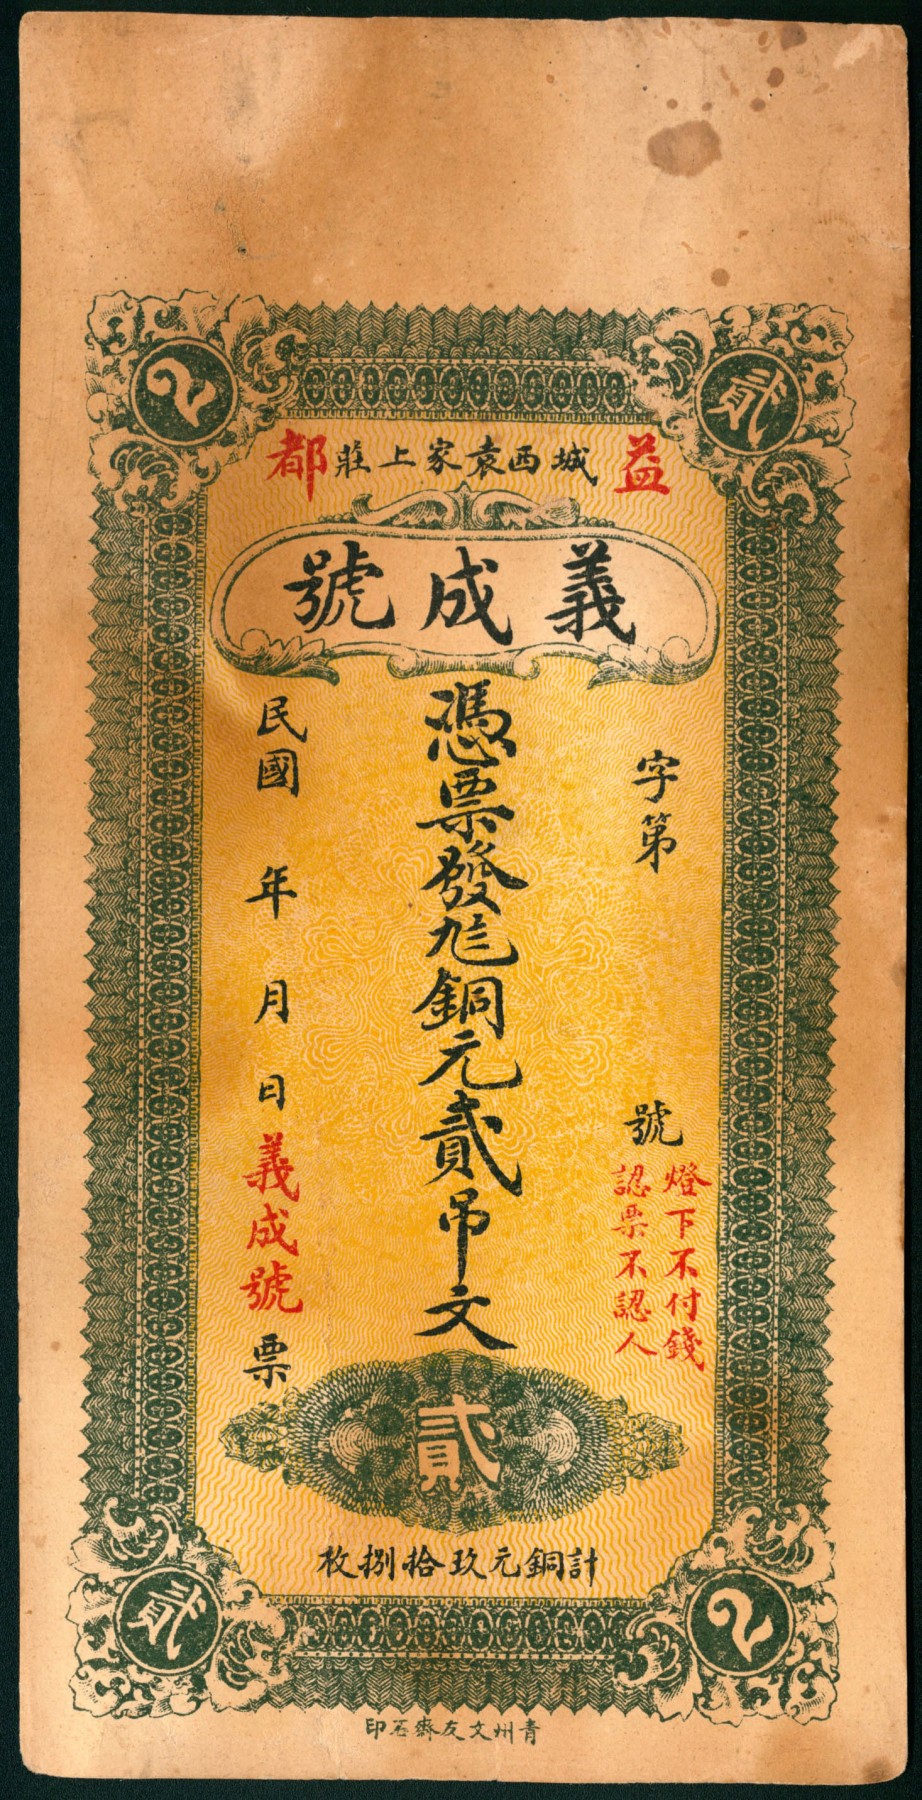 貳
2
益城西袁家上莊都
義成號
字第 號
燈下不付錢
認票不認人
憑票發兌銅元貳吊文
民國 年 月 日義成號票
貳
計銅元玖拾捌枚
2
貳
青州文友齋石印